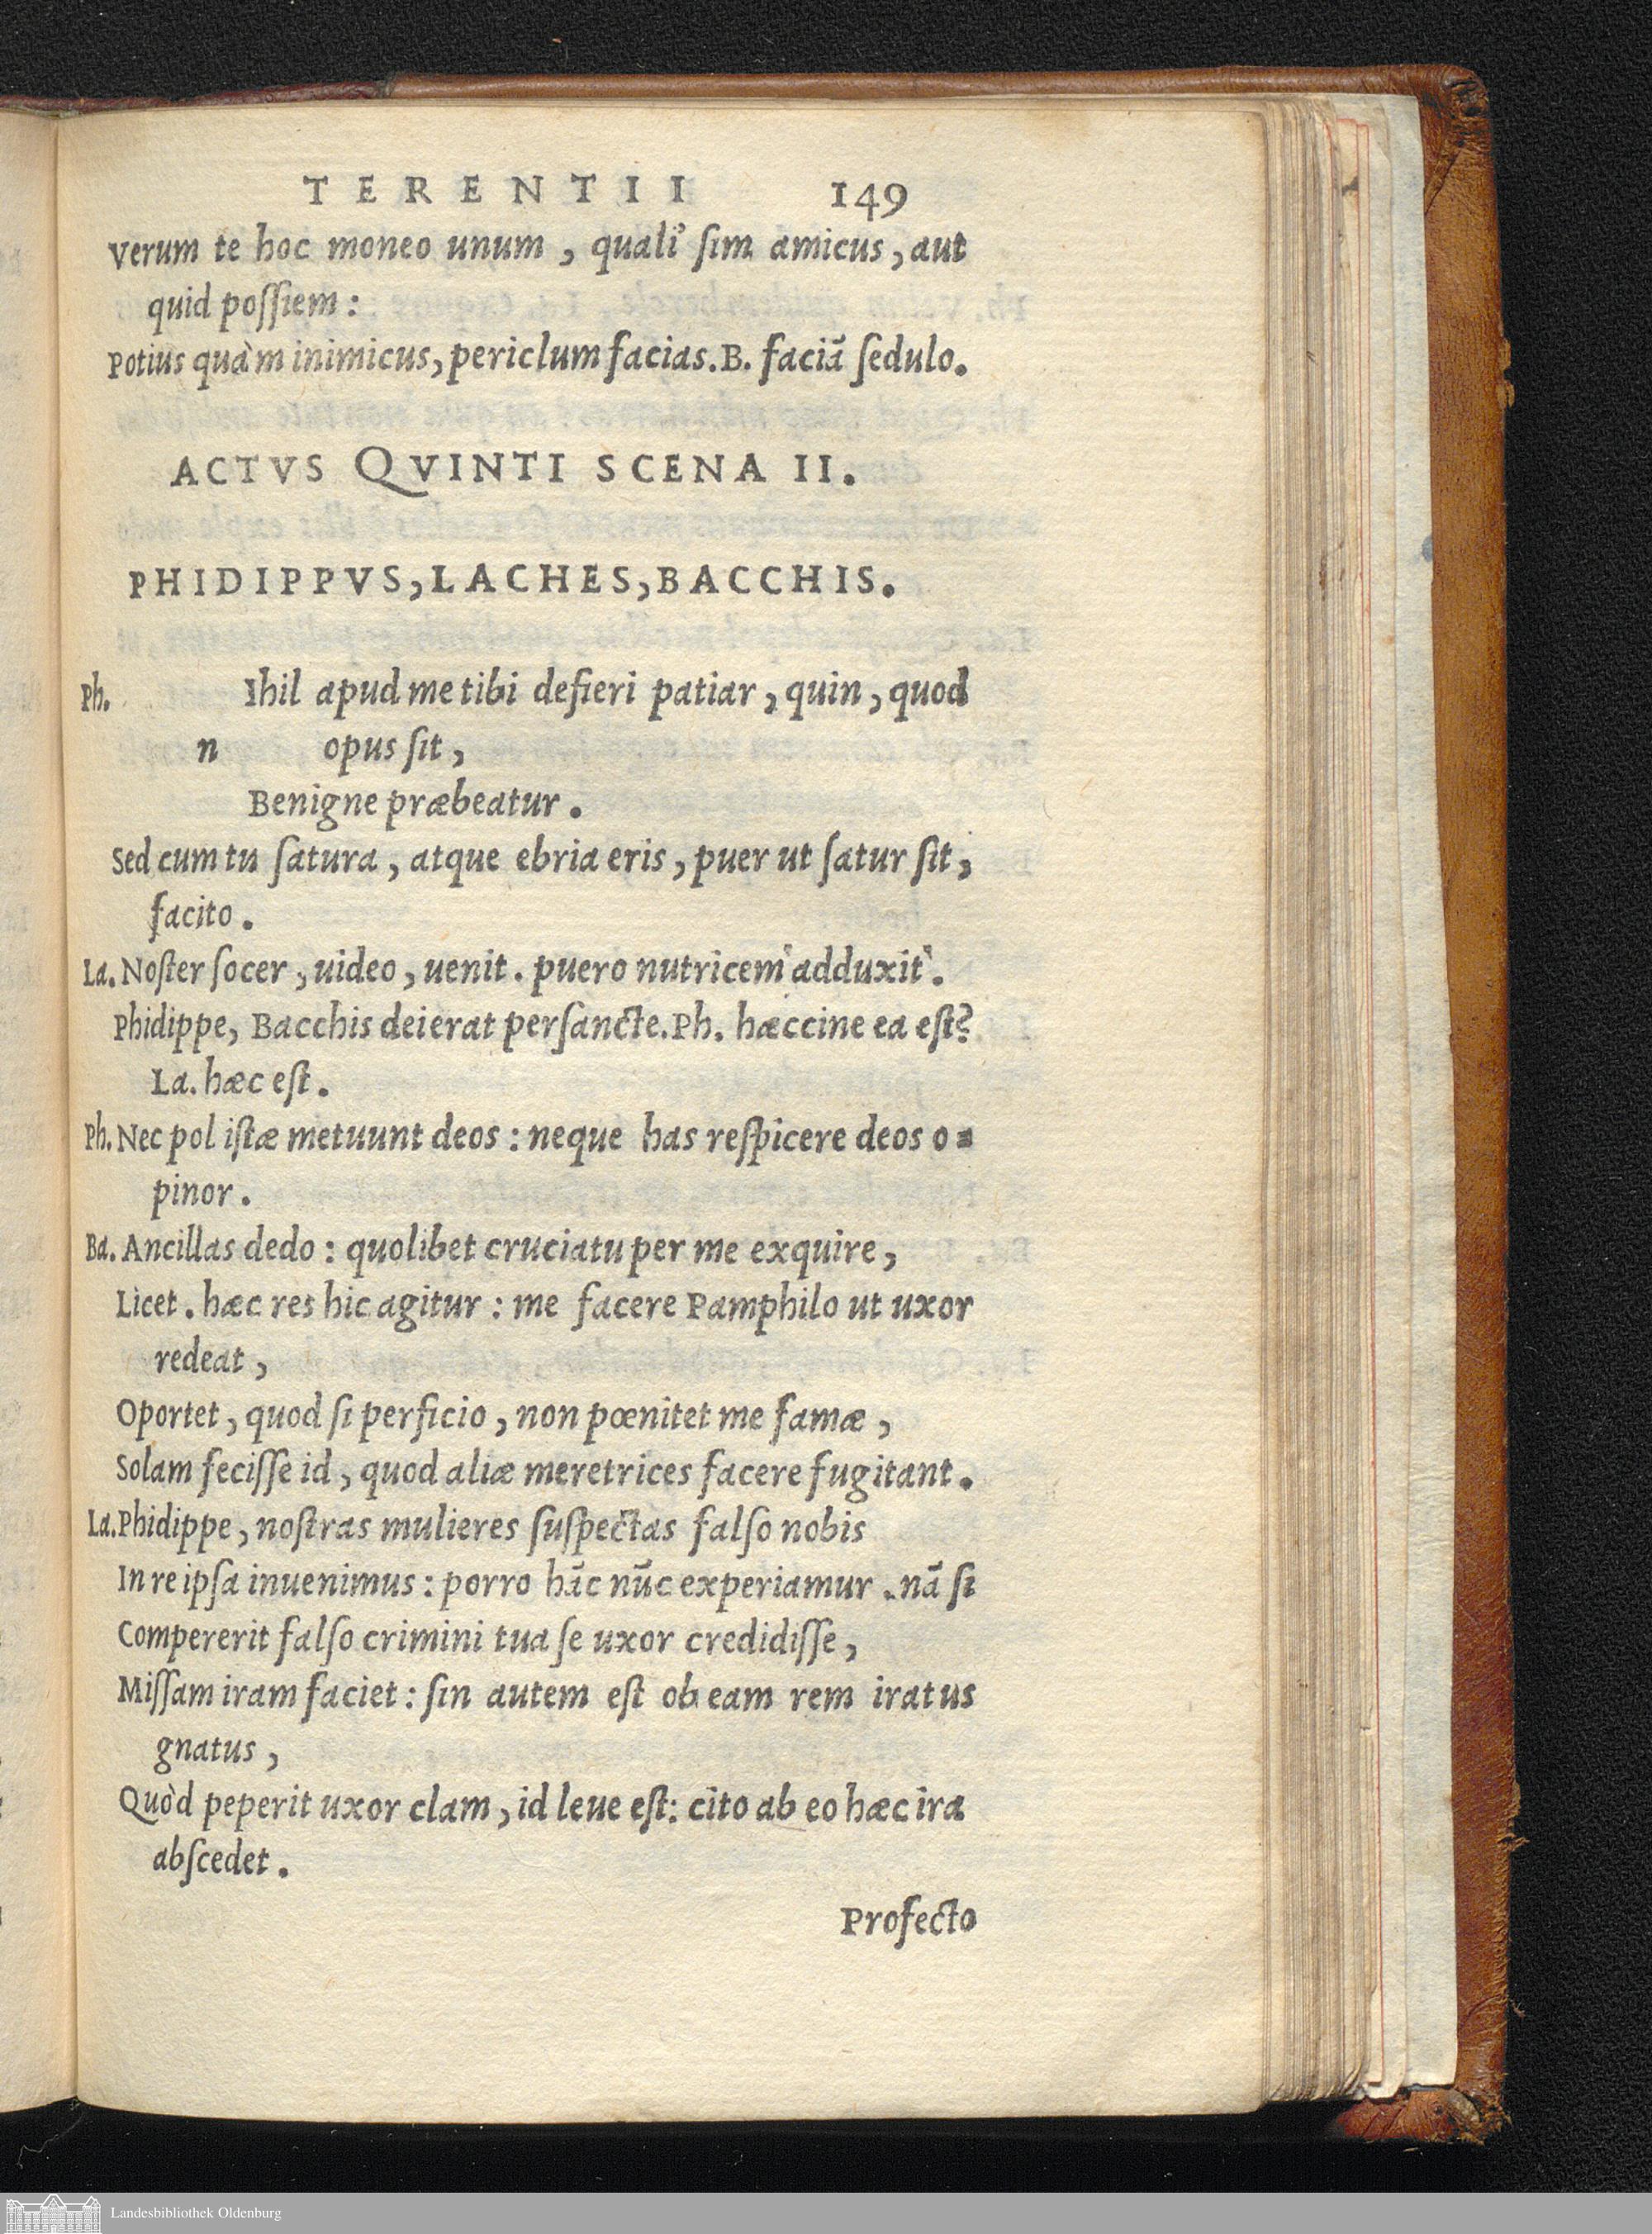 TERENTII 149
Verum te hoc moneo unum, quali' ſim amicus, aut
quid poſſiem:
Potius quàm inimicus, periclum facias. B. faciã ſedulo.
ACTVS QVINTI SCENA II.
PHIDIPPVS, LACHES, BACCHIS.
Ph. Ihil apud me tibi defieri patiar, quin, quod
n opus ſit,
Benigne præbeatur.
Sed cum tu ſatura, atque ebria eris, puer ut ſatur ſit,
facito.
La. Noſter ſocer, uideo, uenit. puero nutricem adduxit.
Phidippe, Bacchis deierat perſancte. Ph. hæccine ea eſt?
La. hæc eſt.
Ph. Nec pol iſtæ metuunt deos: neque has reſpicere deos o=
pinor.
Ba. Ancillas dedo: quolibet cruciatu per me exquire,
Licet. hæc res hic agitur: me facere Pamphilo ut uxor
redeat,
Oportet, quod ſi perficio, non pœnitet me famæ,
Solam feciſſe id, quod aliæ meretrices facere fugitant.
La. Phidippe, noſtras mulieres ſuſpectas falſo nobis
In re ipſa inuenimus: porro hãc nũc experiamur. nã ſi
Compererit falſo crimini tua ſe uxor credidiſſe,
Miſſam iram faciet: ſin autem eſt ob eam rem iratus
gnatus,
Quòd peperit uxor clam, id leue eſt: cito ab eo hæc ira
abſcedet.
Profecto
Landesbibliothek Oldenburg